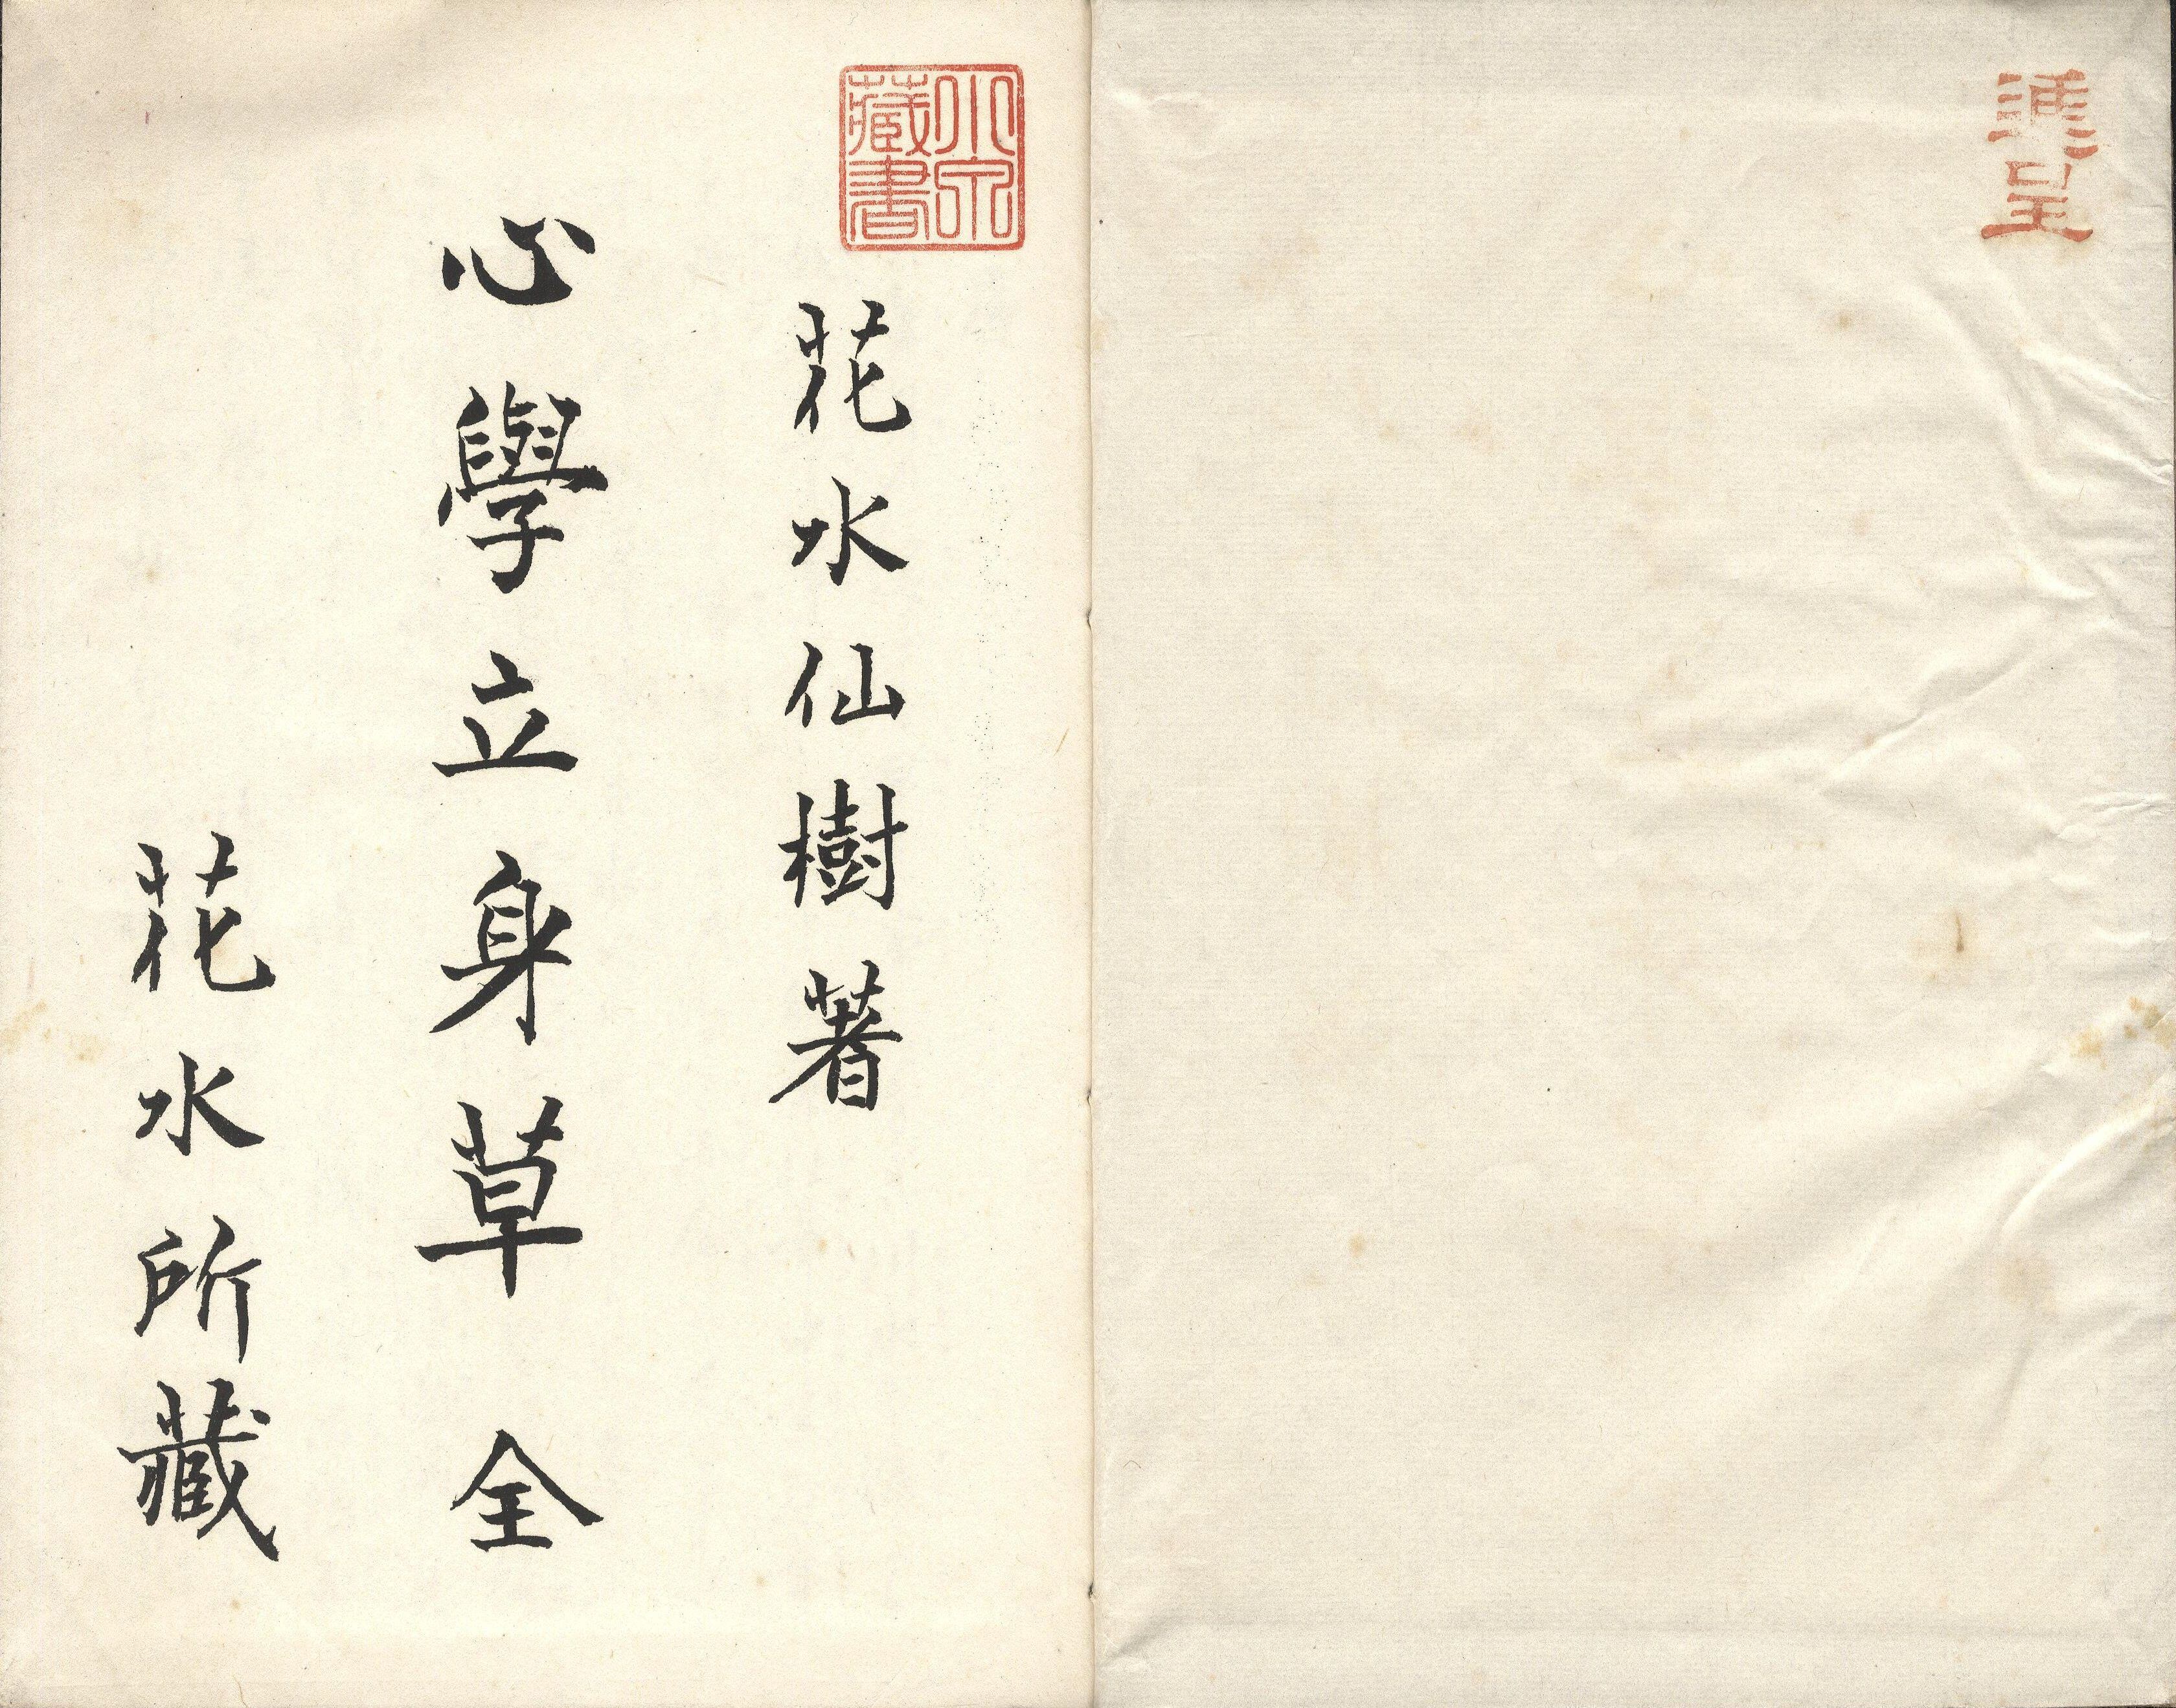 謹呈
小泉
藏書
花水仙樹著
心學立身草 全
花水所藏